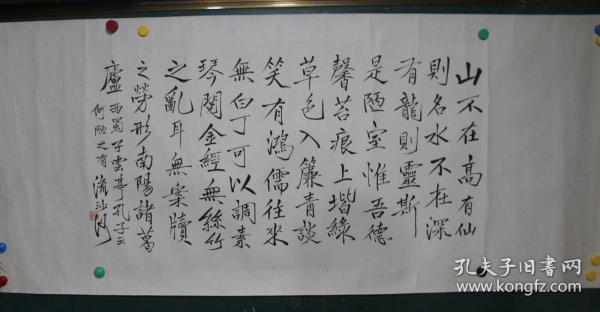 山不在高有仙
則名水不在深
有龍則靈斯
是陋室惟吾德
馨苔痕上堦綠
草色入簾青談
笑有鴻儒往來
無白丁可以調素
琴閱金經無絲竹
之亂耳無案牘
之勞形南陽諸葛
廬西蜀子雲亭孔子云
何陋之有 流沙河
孔夫子旧书网
www.kongfz.com